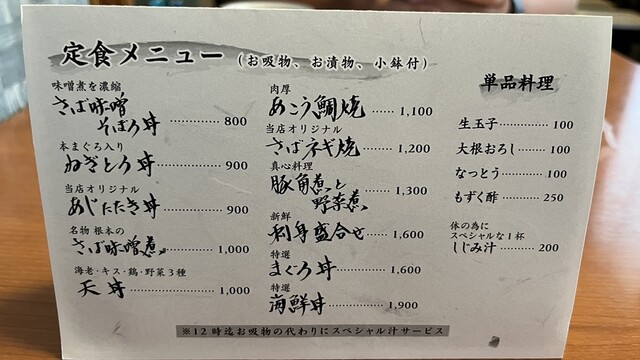 定食メニュー（お吸物、お漬物、小鉢付）
味噌煮を濃縮
さば味噌
そぼろ丼 ………… 800
本まぐろ入り
ねぎとろ丼 ………… 900
当店オリジナル
あじたたき丼 ………… 900
名物 根本の
さば味噌煮 ………… 1,000
海老・キス・鶏・野菜3種
天丼 ………… 1,000
肉厚
あこう鯛焼 …… 1,100
当店オリジナル
さばネギ焼 …… 1,200
真心料理
豚角煮と
野菜煮 …… 1,300
新鮮
刺身盛合せ …… 1,600
特選
まぐろ丼 …… 1,600
特選
海鮮丼 …… 1,900
単品料理
生玉子 ………… 100
大根おろし ……… 100
なっとう ………… 100
もずく酢 ………… 250
体の為に
スペシャルな1杯
しじみ汁 ………… 200
※12時迄お吸物の代わりにスペシャル汁サービス